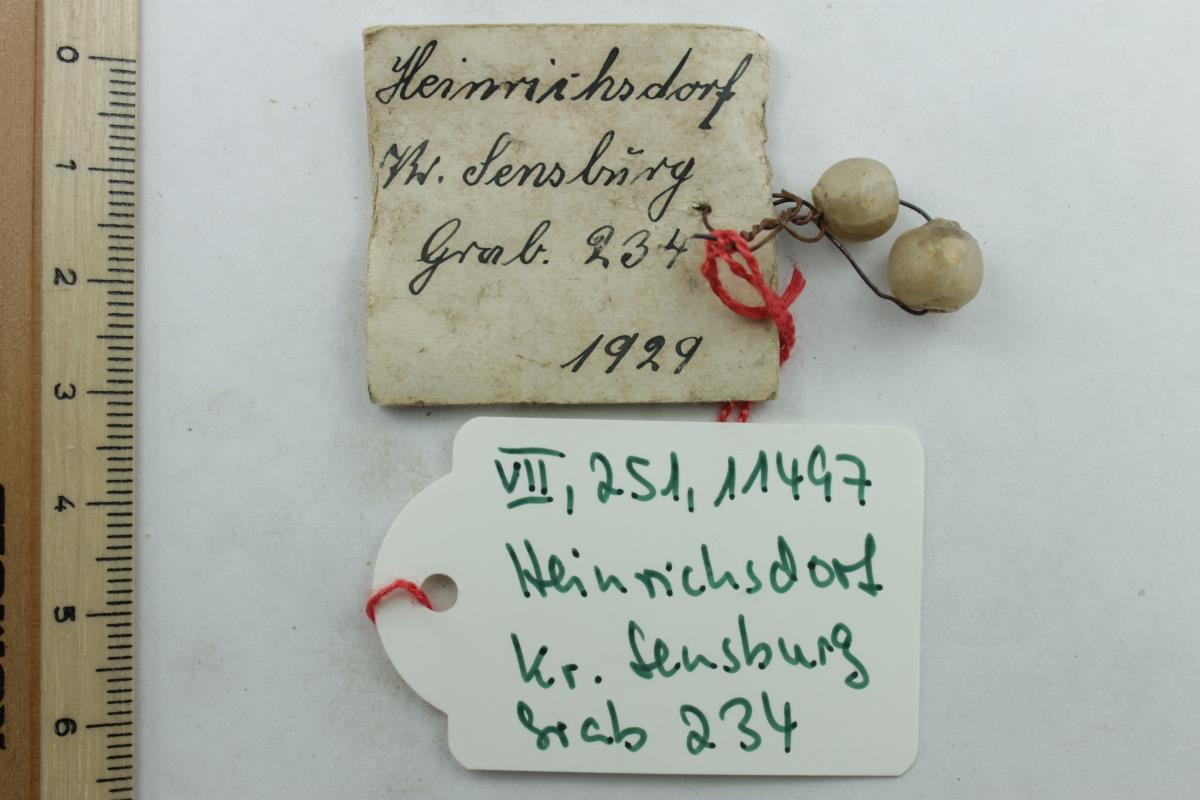 Heinrichsdorf
Kr. Sensburg
Grab. 234
1929
VII, 251, 11497
Heinrichsdorf
Kr. Sensburg
Grab 234
0
1
2
3
4
5
6